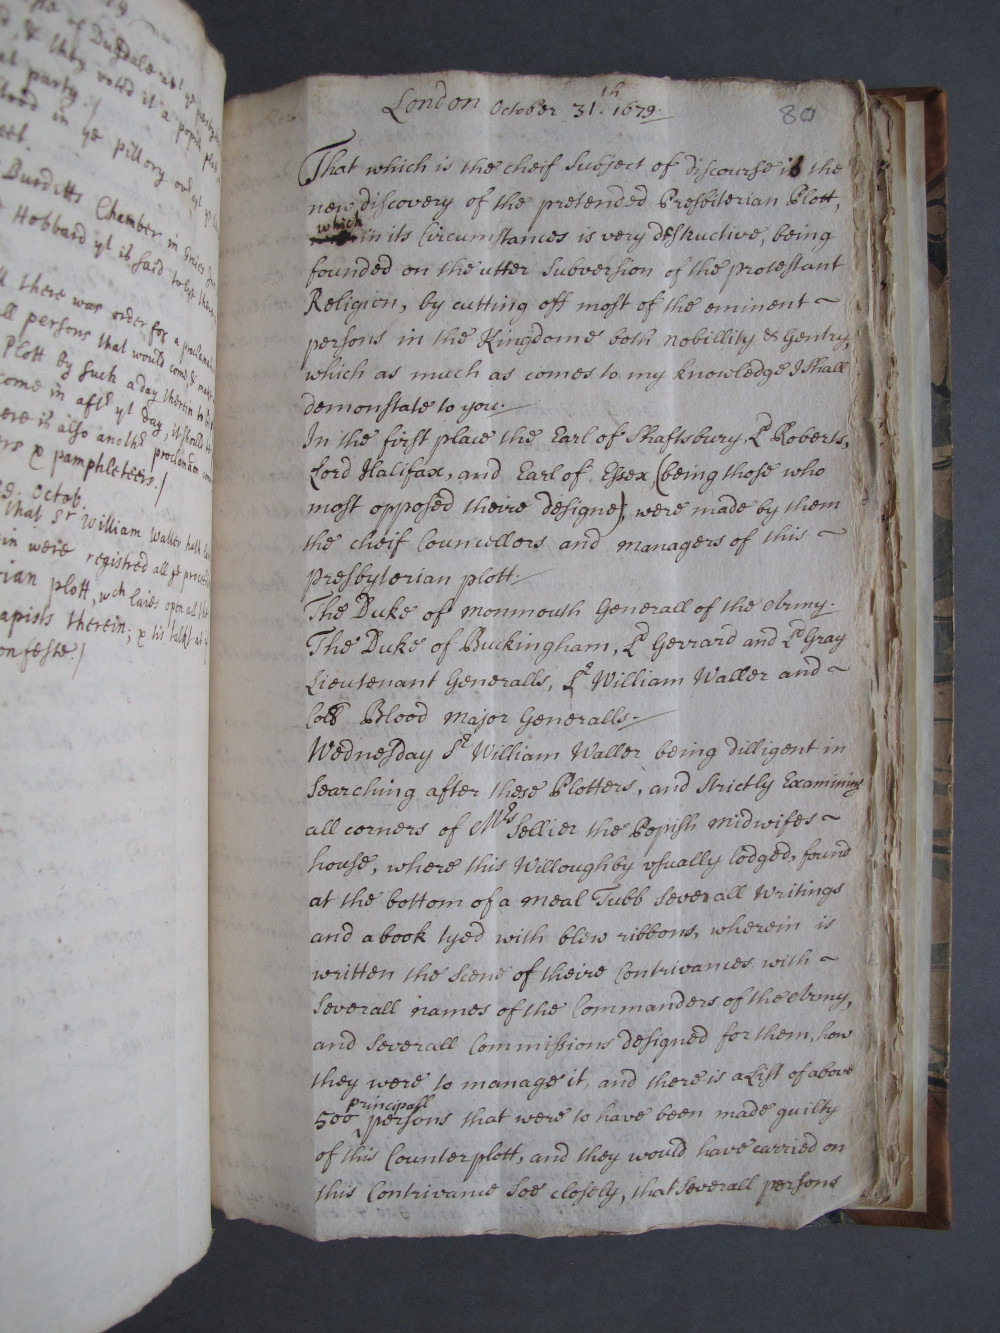 of Dugdale
& they voted it a popish plot
party
stood in ye pillory
Burditts Chamber in Graies
Hobbard yt is said to
there was order for a
all persons that would come &
Plott by such a day therein to
come in aftr yt day, it should
there is also anothr proclamation
& pamphleteers./
29. Octob.
that Sr William Waller hath
in were registred all ye
plott, wch laies open all
papists therein; & tis talkt
confeste./
London October 31.th 1679.
80
That which is the cheif Subject of discourse is the
new discovery of the pretended Presbiterian Plott,
which in its Circumstances is very destructive, being
founded on the utter Subversion of the protestant
Religion, by cutting off most of the eminent ~
persons in the Kingdome both nobillity & Gentry,
which as much as comes to my knowledge I shall
demonstate to you.
In the first place the Earl of Shaftsbury, Ld Roberts,
Lord Halifax, and Earl of Essex, (being those who
most opposed theire designe), were made by them
the cheif Councellors and managers of this ~
presbyterian plott.
The Duke of monmouth Generall of the Army.
The Duke of Buckingham, Ld Gerrard and Ld Gray
Lieutenant Generalls, Sr William Waller and ~
Coll Blood Major Generalls.
Wednesday Sr William Waller being dilligent in
Searching after these Plotters, and Strictly Examining
all corners of Mrs Sellier the Popish midwifes ~
house, where this Willoughby usually lodged, found
at the bottom of a meal Tubb severall Writings
and a book tyed with blew ribbons, wherein is
written the Scene of theire Contrivances with ~
Severall names of the Commanders of the Army,
and Severall Commissions designed for them, how
they were to manage it, and there is a List of above
500 principall persons that were to have been made guilty
of this Counterplott, and they would have carried on
this Contrivance soe closely, that Severall persons